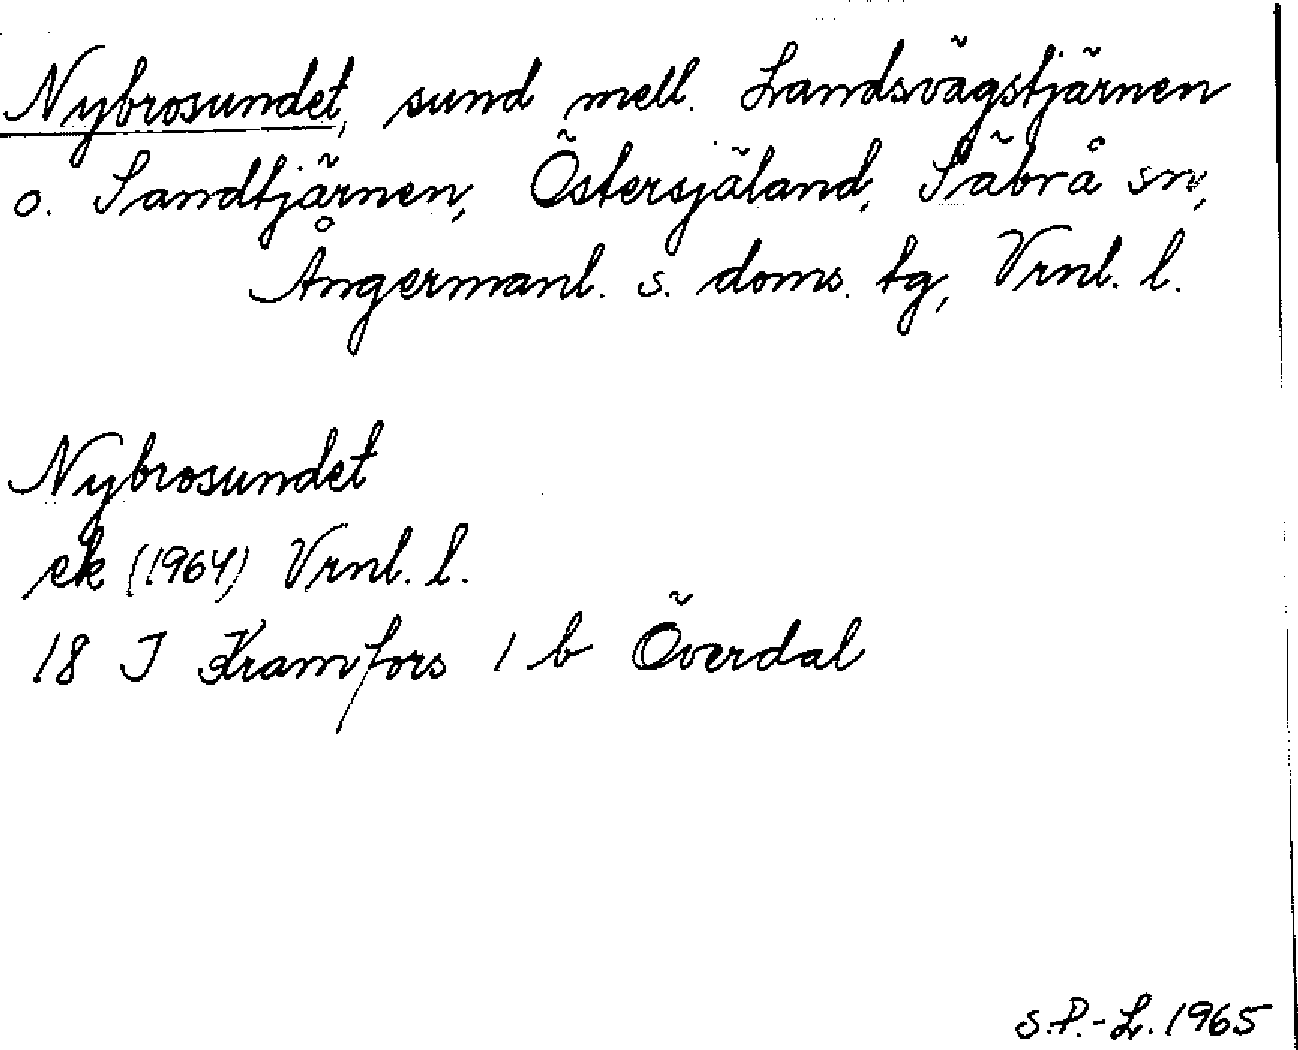 Nybrosundet, sund mell. Landsvägstjärnen
o. Sandtjärnen, Östersjäland, Säbrå sn,
Ångermanl. s. doms. tg, Vrnl. l.
Nybrosundet
ek (1964) Vrnl. l.
18 I Kramfors 1 b Överdal
S.P.-L. 1965